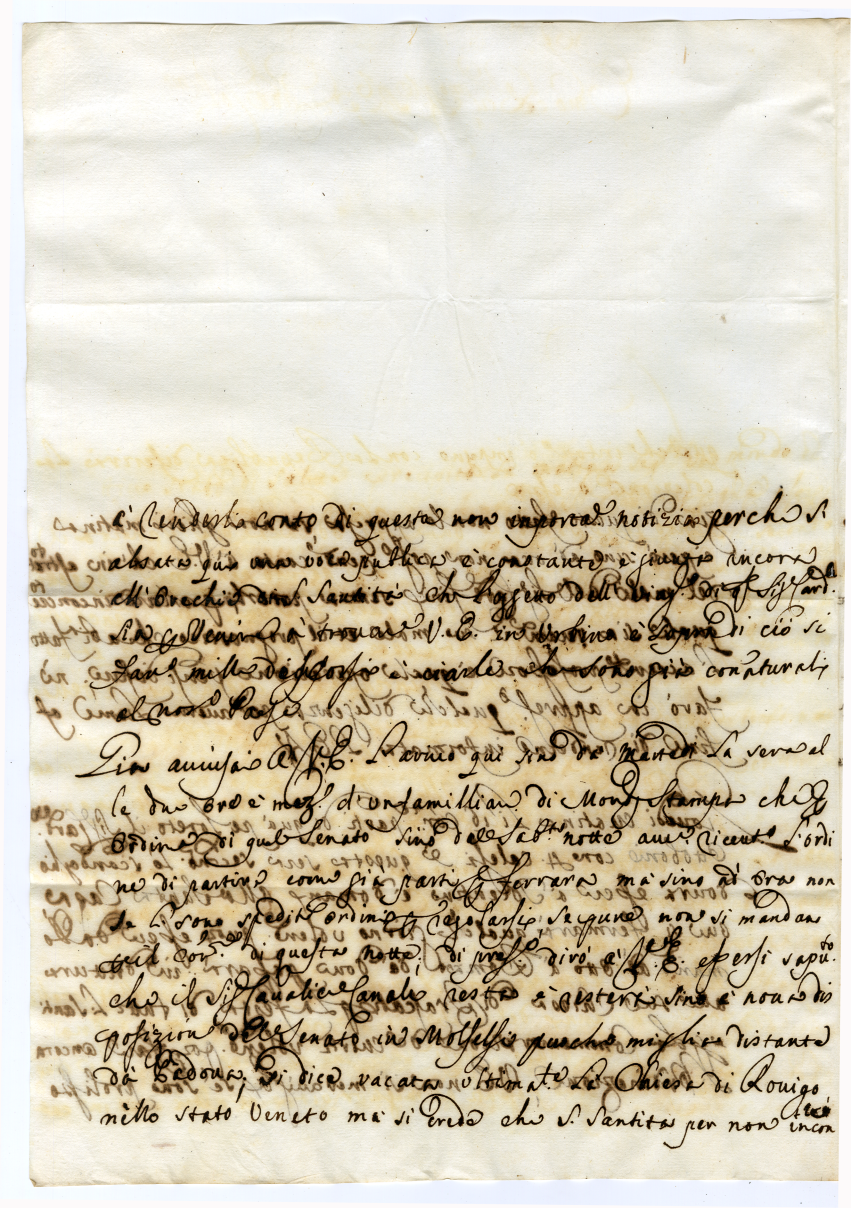 à renderli conto di questa non importa.e notizia perche si
alzata qui una voce publica e constante e giunta ancora
all'Orechie di S. Santità che l'oggetto dell' di q.to Sig.r Card.le
sia venire a trovar V. E. in Urbino e sopra di ciò si
fan.o mille discorsi e ciarle che sono già conaturali
al nos.o Paese
Più avvisai a V. E. l'arivo qui sino da Martedi la sera al
le due ore e mez.a d'un familliare di Mon.r Stampa che
ordine di quel Senato sino del Sab.to notte avev.a ricevut.o l'ordi
ne di partire come già parti p Ferrara ma sino ad ora non
se li sono spediti ordini p regolarsi se pure non si mandan
p il Cor.re di questa notte; di pres.e dirò a V. E. essersi saputo
che il Sig. Cavalier Canale resta e resterà sino a nova dis
posizione del Senato in poche miglia distante
da Padova; Si dice vacata ultimam.te la Chiesa di Rovigo
nello stato Veneto ma si crede che S. Santità per non incon